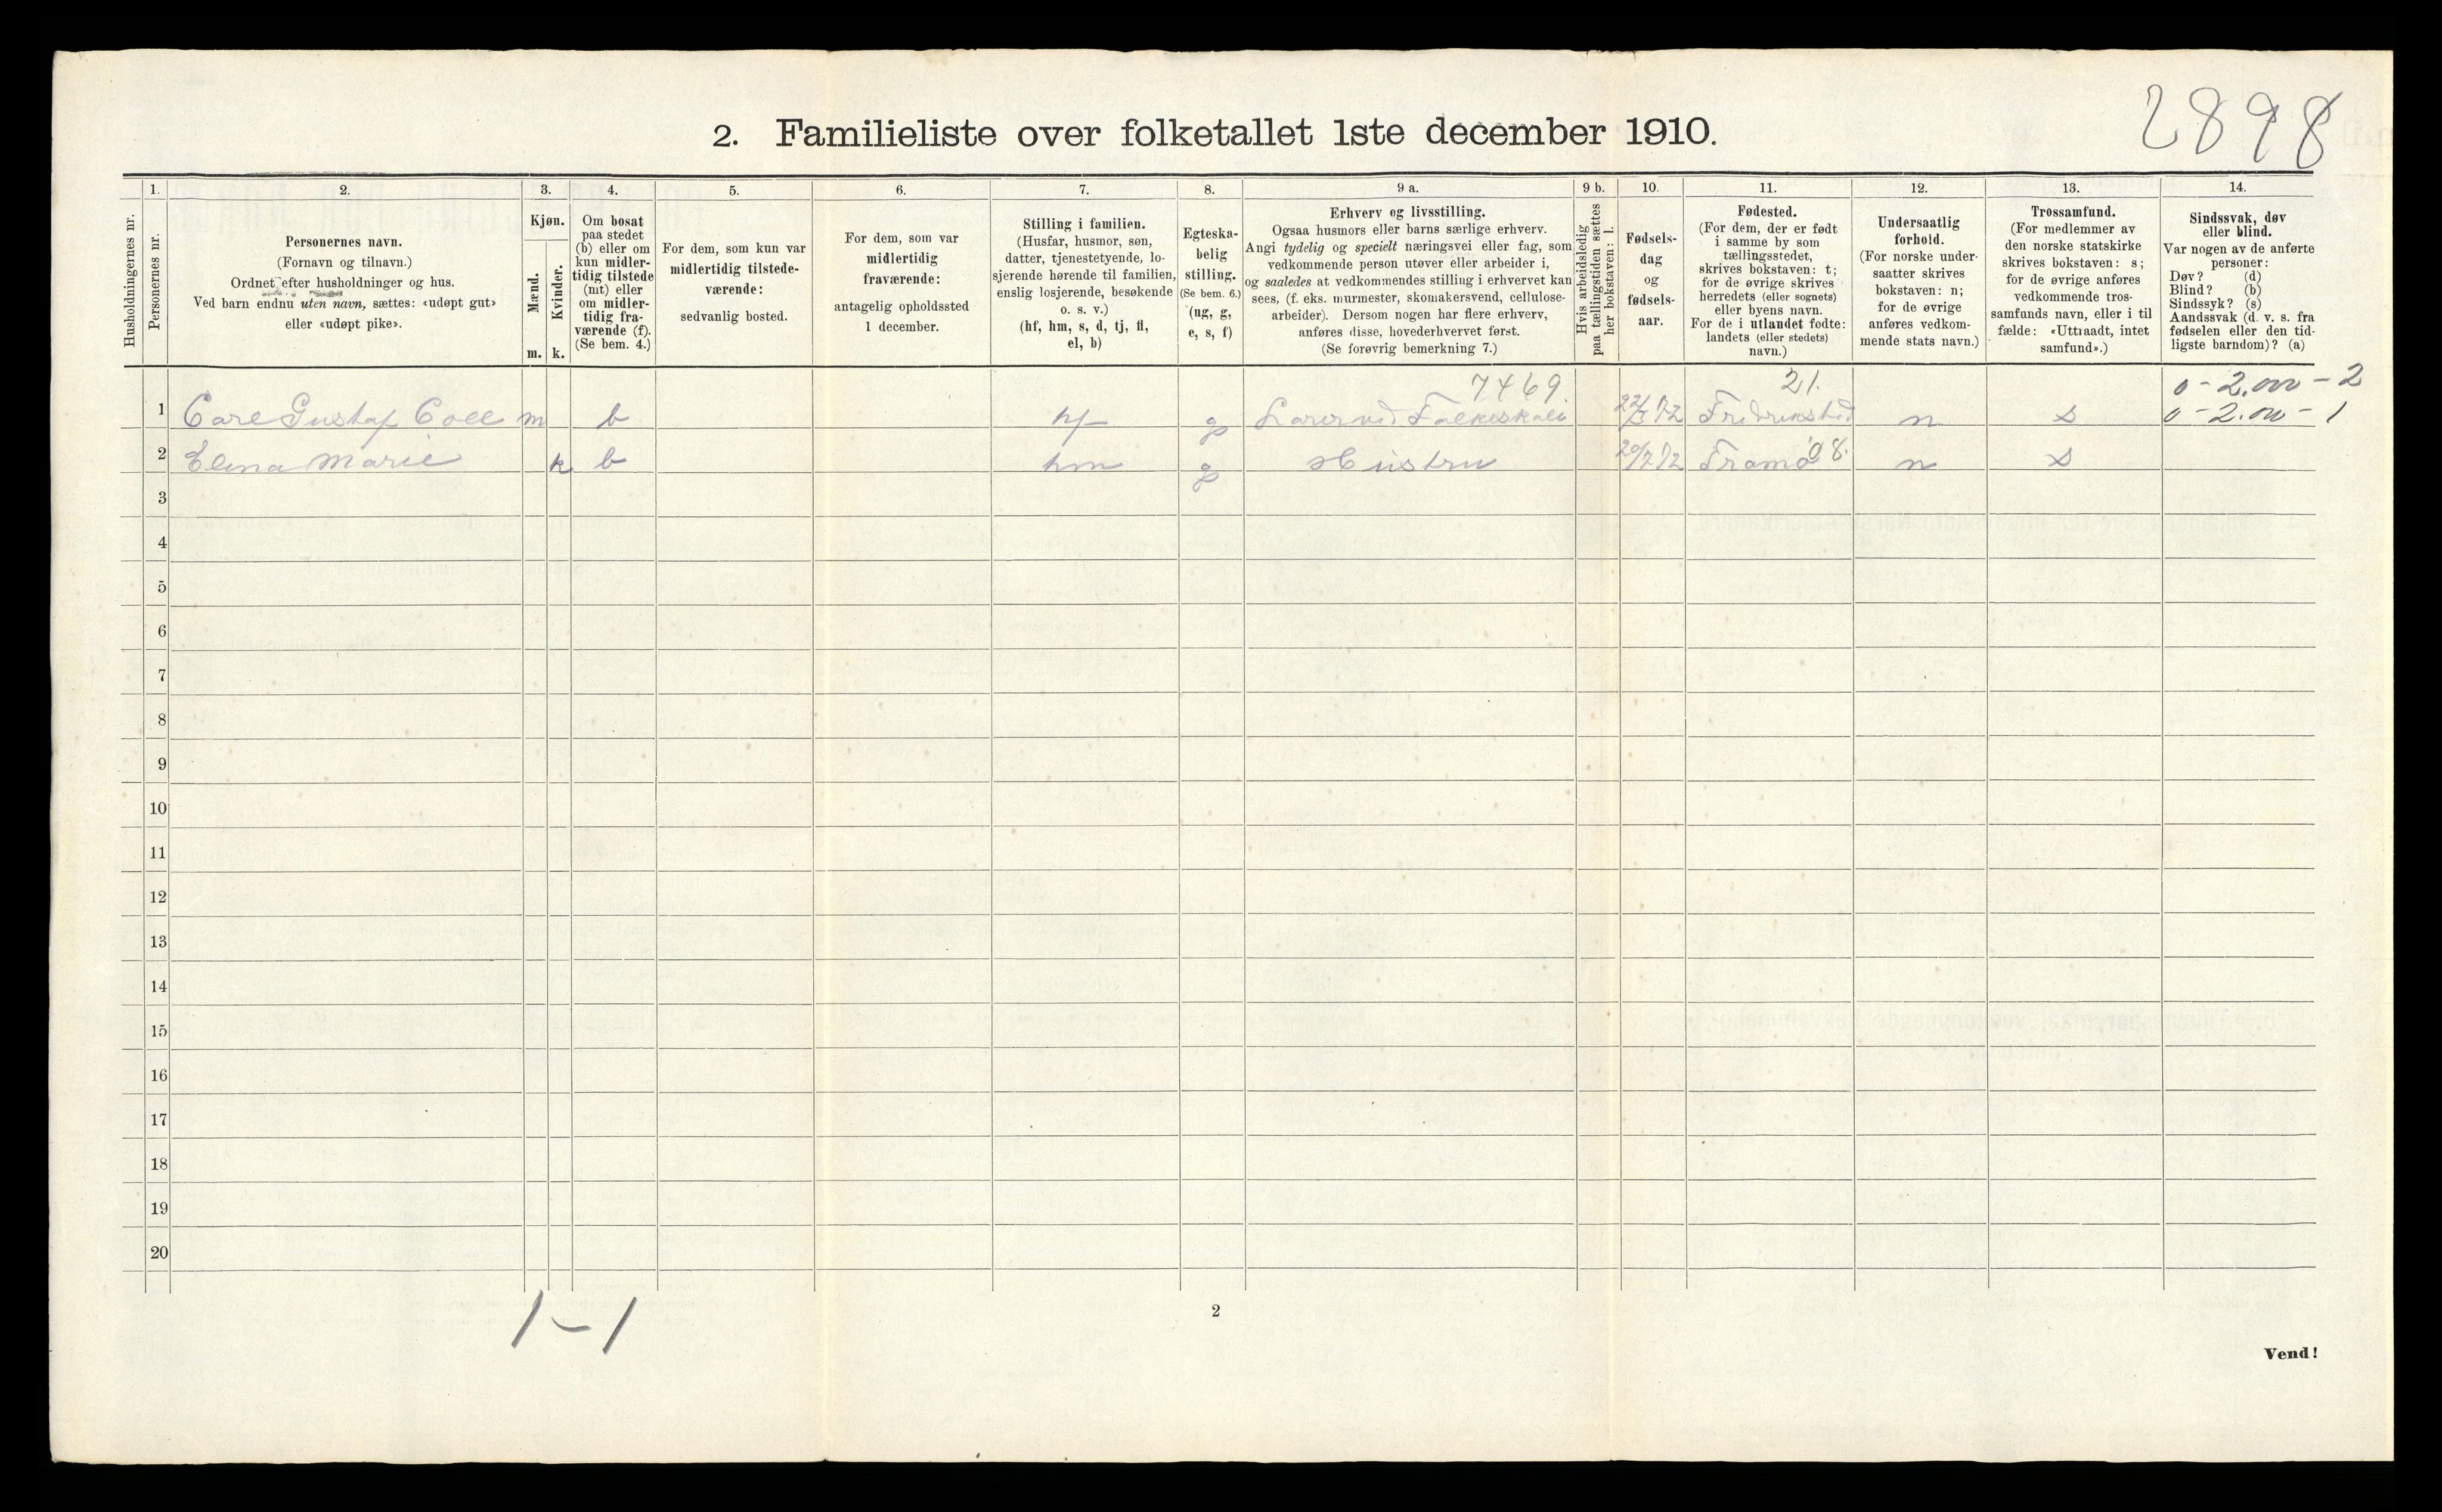 2898
2. Familieliste over folketallet 1ste december 1910.
Husholdningernes nr.
1.
Personernes nr.
2.
Personernes navn.
(Fornavn og tilnavn.)
Ordnet efter husholdninger og hus.
Ved barn endnu uten navn, sættes: «udøpt gut»
eller «udøpt pike».
3.
Kjøn.
Mænd.
Kvinder.
m. k.
4.
Om bosat
paa stedet
(b) eller om
kun midler-
tidig tilstede
(mt) eller
om midler-
tidig fra-
værende (f).
(Se bem. 4.)
5.
For dem, som kun var
midlertidig tilstede-
værende:
sedvanlig bosted.
6.
For dem, som var
midlertidig
fraværende:
antagelig opholdssted
1 december.
7.
Stilling i familien.
(Husfar, husmor, søn,
datter, tjenestetyende, lo-
sjerende hørende til familien,
enslig losjerende, besøkende
o. s. v.)
(hf, hm, s, d, tj, fl,
el, b)
8.
Egteska-
belig
stilling.
(Se bem. 6.)
(ug, g,
e, s, f)
9 a.
Erhverv og livsstilling.
Ogsaa husmors eller barns særlige erhverv.
Angi tydelig og specielt næringsvei eller fag, som
vedkommende person utøver eller arbeider i,
og saaledes at vedkommendes stilling i erhvervet kan
sees, (f. eks. murmester, skomakersvend, cellulose-
arbeider). Dersom nogen har flere erhverv,
anføres disse, hovederhvervet først.
(Se forøvrig bemerkning 7.)
9 b.
Hvis arbeidsledig
paa tællingstiden sættes
her bokstaven: l.
10.
Fødsels-
dag
og
fødsels-
aar.
11.
Fødested.
(For dem, der er født
i samme by som
tællingsstedet,
skrives bokstaven: t;
for de øvrige skrives
herredets (eller sognets)
eller byens navn.
For de i utlandet fødte:
landets (eller stedets)
navn.)
12.
Undersaatlig
forhold.
(For norske under-
saatter skrives
bokstaven: n;
for de øvrige
anføres vedkom-
mende stats navn.)
13.
Trossamfund.
(For medlemmer av
den norske statskirke
skrives bokstaven: s;
for de øvrige anføres
vedkommende tros-
samfunds navn, eller i til
fælde: «Uttraadt, intet
samfund».)
14.
Sindssvak, døv
eller blind.
Var nogen av de anførte
personer:
Døv? (d)
Blind? (b)
Sindssyk? (s)
Aandssvak (d. v. s. fra
fødselen eller den tid-
ligste barndom)? (a)
7469. 21. 0-2.00-2
1 Carl Gustaf Coll m b hf g Lærer ved Folkeskolen 72 Fredrikstad n s 0-2.00-1
2 Elena Marie k b hm g Hustru 72 Tromø 08. n s
3
4
5
6
7
8
9
10
11
12
13
14
15
16
17
18
19
20
1-1
2
Vend!